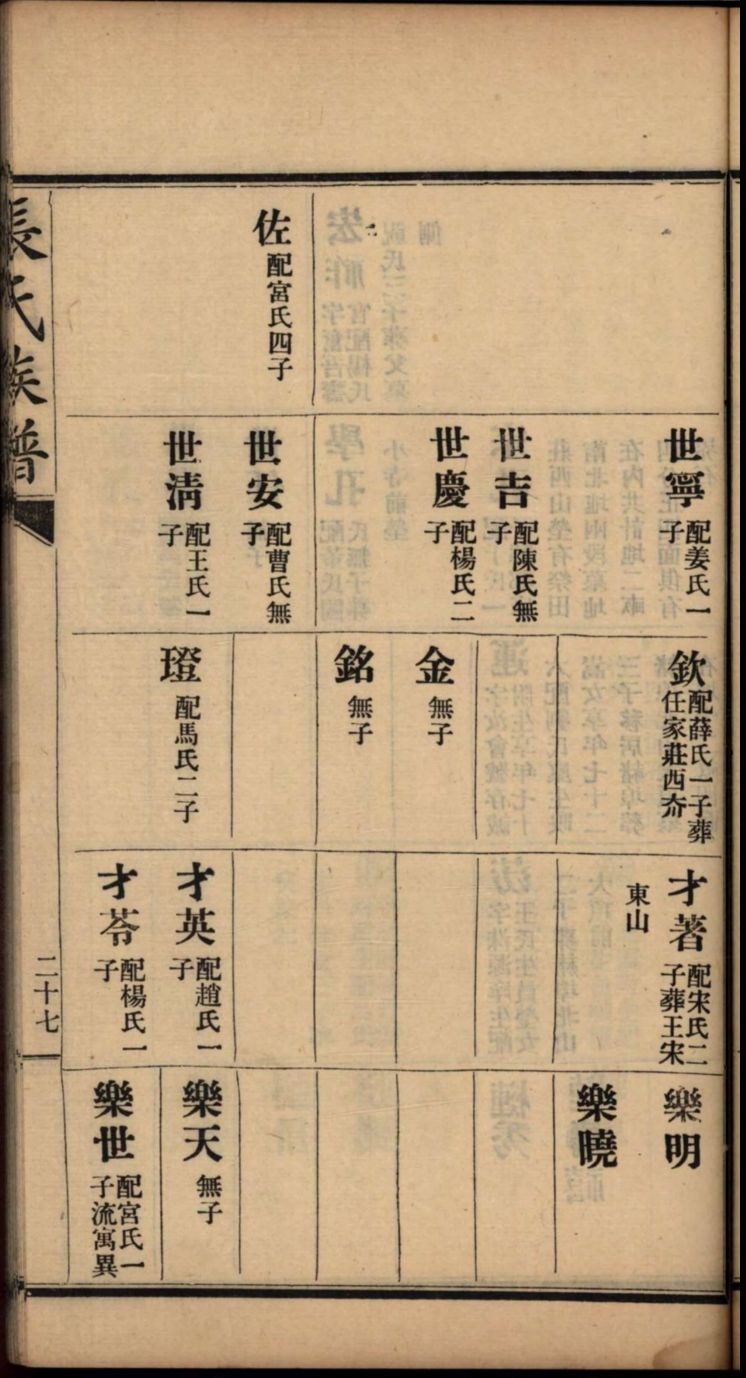 佐 配宮氏四子
世寧 配姜氏一
子
世吉 配陳氏無
子
世慶 配楊氏二
子
世安 配曹氏無
子
世清 配王氏一
子
欽 配薛氏一子葬
任家莊西夼
金 無子
銘 無子
璒 配馬氏二子
才著 配宋氏二
子葬王宋
東山
才英 配趙氏一
子
才苓 配楊氏一
子
樂明
樂曉
樂天 無子
樂世 配宮氏一
子流寓異
張氏族譜
二十七